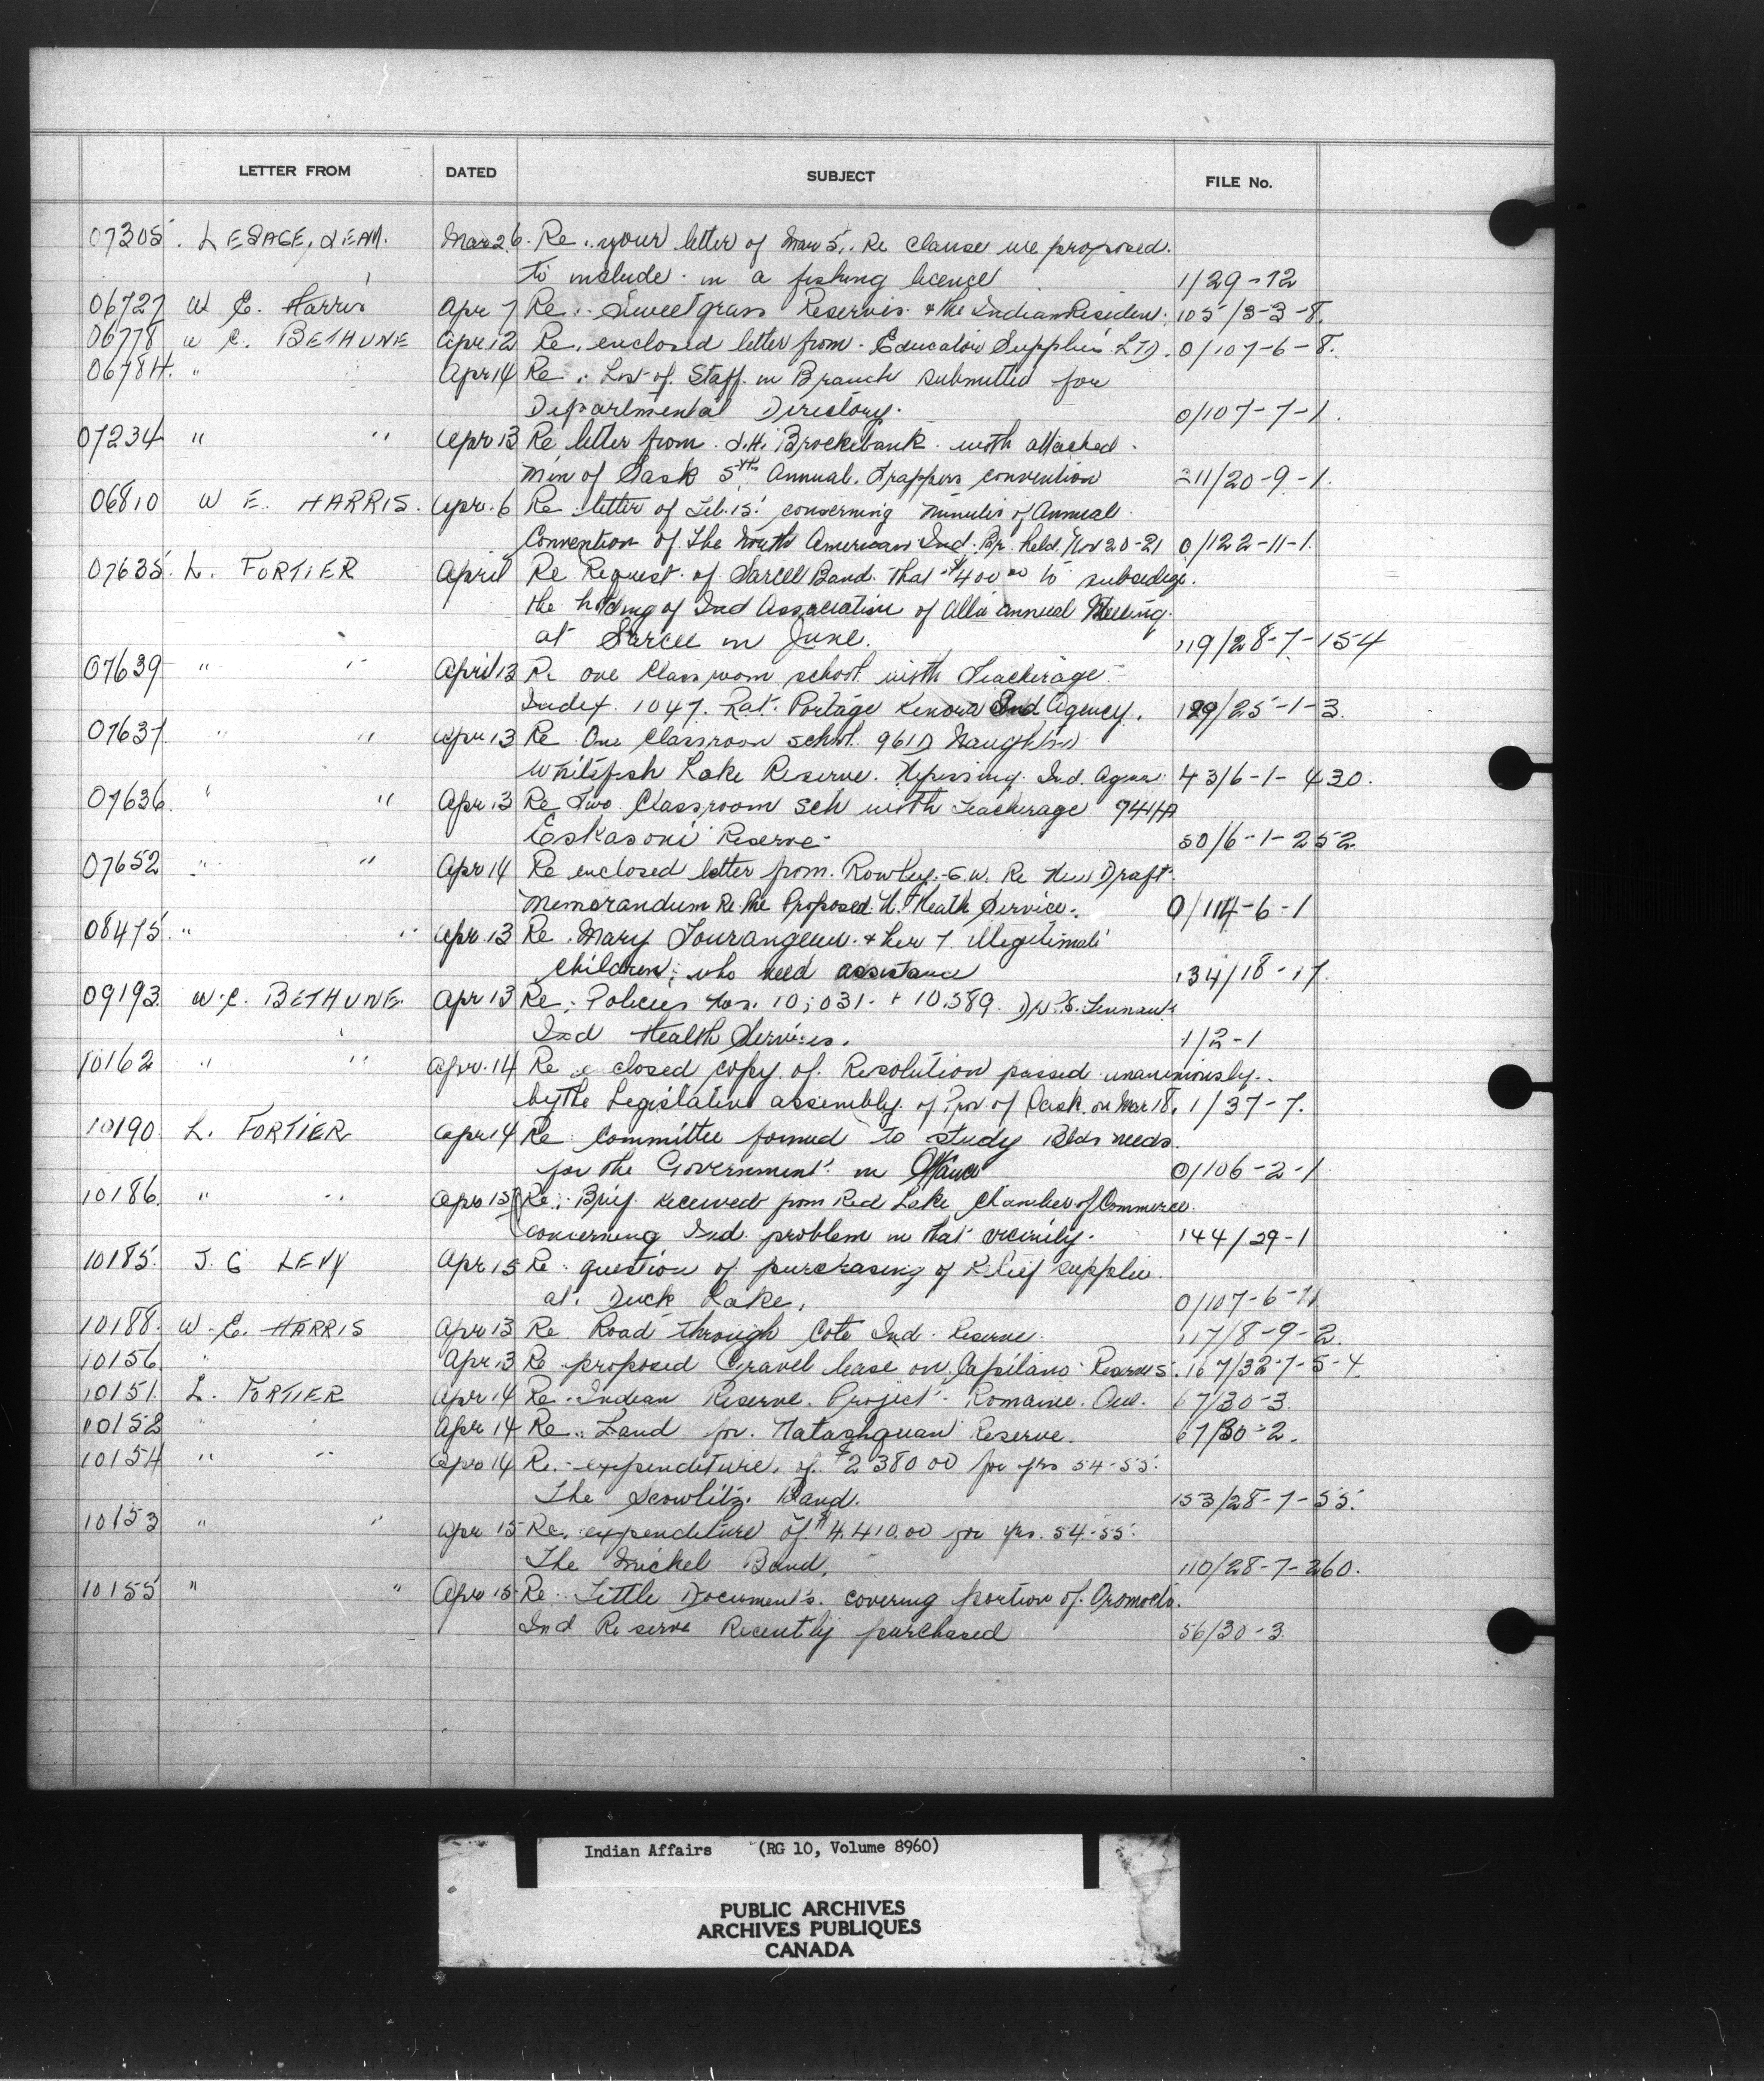 LETTER FROM DATED SUBJECT FILE No.
07305. LESAGE, JEAN. Mar 26. Re. your letter of Mar 5. Re clause we proposed.
to include in a fishing licence 1/29-12
06727 W E. Harris Apr 7 Re. Sweetgrass Reserves. & the Indian Residen. 105/3-3-8.
06778 W C. BETHUNE Apr 12 Re. enclosed letter from. Educator Supplies LTD. 0/107-6-8.
06784. " Apr 14 Re. List of. Staff in Branch submitted for
Departmental Directory. 0/107-7-1.
07234 " " Apr 13 Re letter from. J.H. Brockelbank with attached.
Min of Sask 5th Annual. Trappers convention 211/20-9-1.
06810 W E. HARRIS. Apr. 6 Re letter of Feb. 15. concerning minutes of Annual
Convention of. The North American Ind. Br. held. Nov 20-21 0/122-11-1.
07635. L. FORTIER April Re Request. of Sarcee Band. that $400 00 to subsidize.
the holding of Ind Association of Alta annual Meeting.
at Sarcee in June. 119/28-7-154
07639 " " April 13 Re one Classroom school with Teacherage
Index. 1047. Rat. Portage Kenora Ind Agency. 129/25-1-3.
07637. " " Apr 13 Re One Classroom school. 961D Naughton
Whitefish Lake Reserve. Nipissing. Ind. Agen. 43/6-1-430.
07636. " " Apr 13 Re Two Classroom Sch with Teacherage 7414A
Eskasoni Reserve 50/6-1-252
07652 " " Apr 14 Re enclosed letter from. Rowley. G.W. Re New Draft
Memorandum Re the Proposed N. Heath Service. 0/114-6-1
08475. " " Apr. 13 Re. Mary Tourangeau. & her 7 illegitimate
Children; who need assistance 134/18-17.
09193. W.C. BETHUNE. Apr 13 Re; Policies Nos. 10,031. & 10.589. Dr. P.E. Tennant
Ind Health Services. 1/2-1
10162 " " Apr. 14 Re closed copy of. Resolution passed unanimously.
by the Legislative assembly. of Prov of Sask. on Mar 18. 1/37-7.
10190 L. FORTIER Apr 14 Re. Committee formed to study Blds needs.
for the Government. in 0/106-2-1
10186. " " Apr 15 Re. Brief received from Red Lake Chamber of Commerce
concerning Ind. problem in that vicinity. 144/29-1
10185. J. C LEVY Apr 15 Re. question of purchasing of Relief supplies.
at. Duck Lake. 0/107-6-11
10188. W. E. HARRIS Apr 13 Re Road through Cote Ind. Reserve. 117/8-9-2.
10156 " Apr. 13 Re proposed Gravel lease on. Capilano Reserve 5. 167/32-7-5-4.
10151. L. FORTIER Apr 14 Re. Indian Reserve. Project. Romaine. Que. 67/30-3.
10152 " " Apr 14 Re. Land for. Natashquan Reserve. 67/30-2.
10154 " " Apr 14 Re. expenditure. of. $2380 00 for yrs 54-55.
The Scowlitz. Band. 153/28-7-55.
10153 " " Apr 15 Re. expenditure of $4.410.00 for yrs. 54-55.
The Michel Band. 110/28-7-260.
10155 " " Apr 15 Re. Tittle Documents. covering portion of. Oromocto.
Ind Reserve Recently purchased 56/30-3.
Indian Affairs (RG 10, Volume 8960)
PUBLIC ARCHIVES
ARCHIVES PUBLIQUES
CANADA